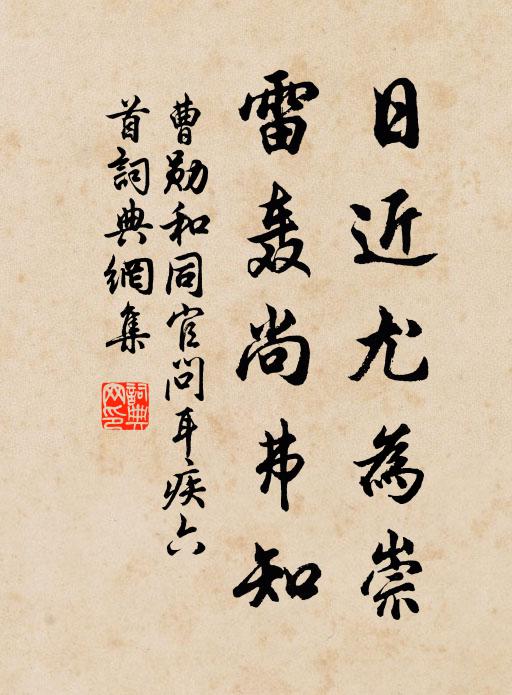 日近尤為崇
雷轰尚弗知
曹勋和同官問耳疾六
首詞典網集
詞典
网印